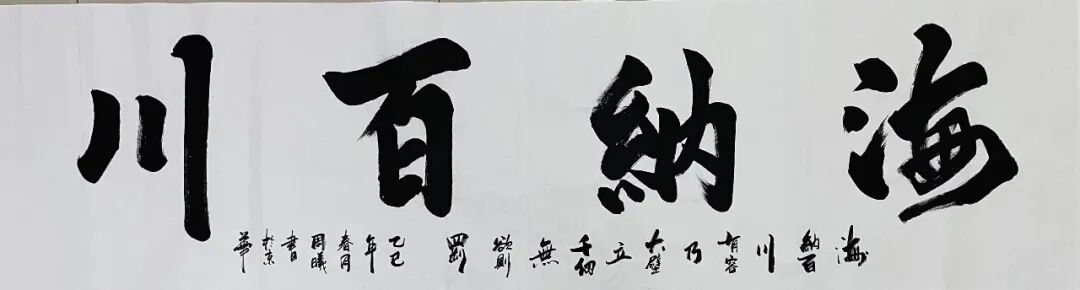 海納百川
海納百川有容乃大壁立千仞無欲則剛乙巳年春月周曦書於京華